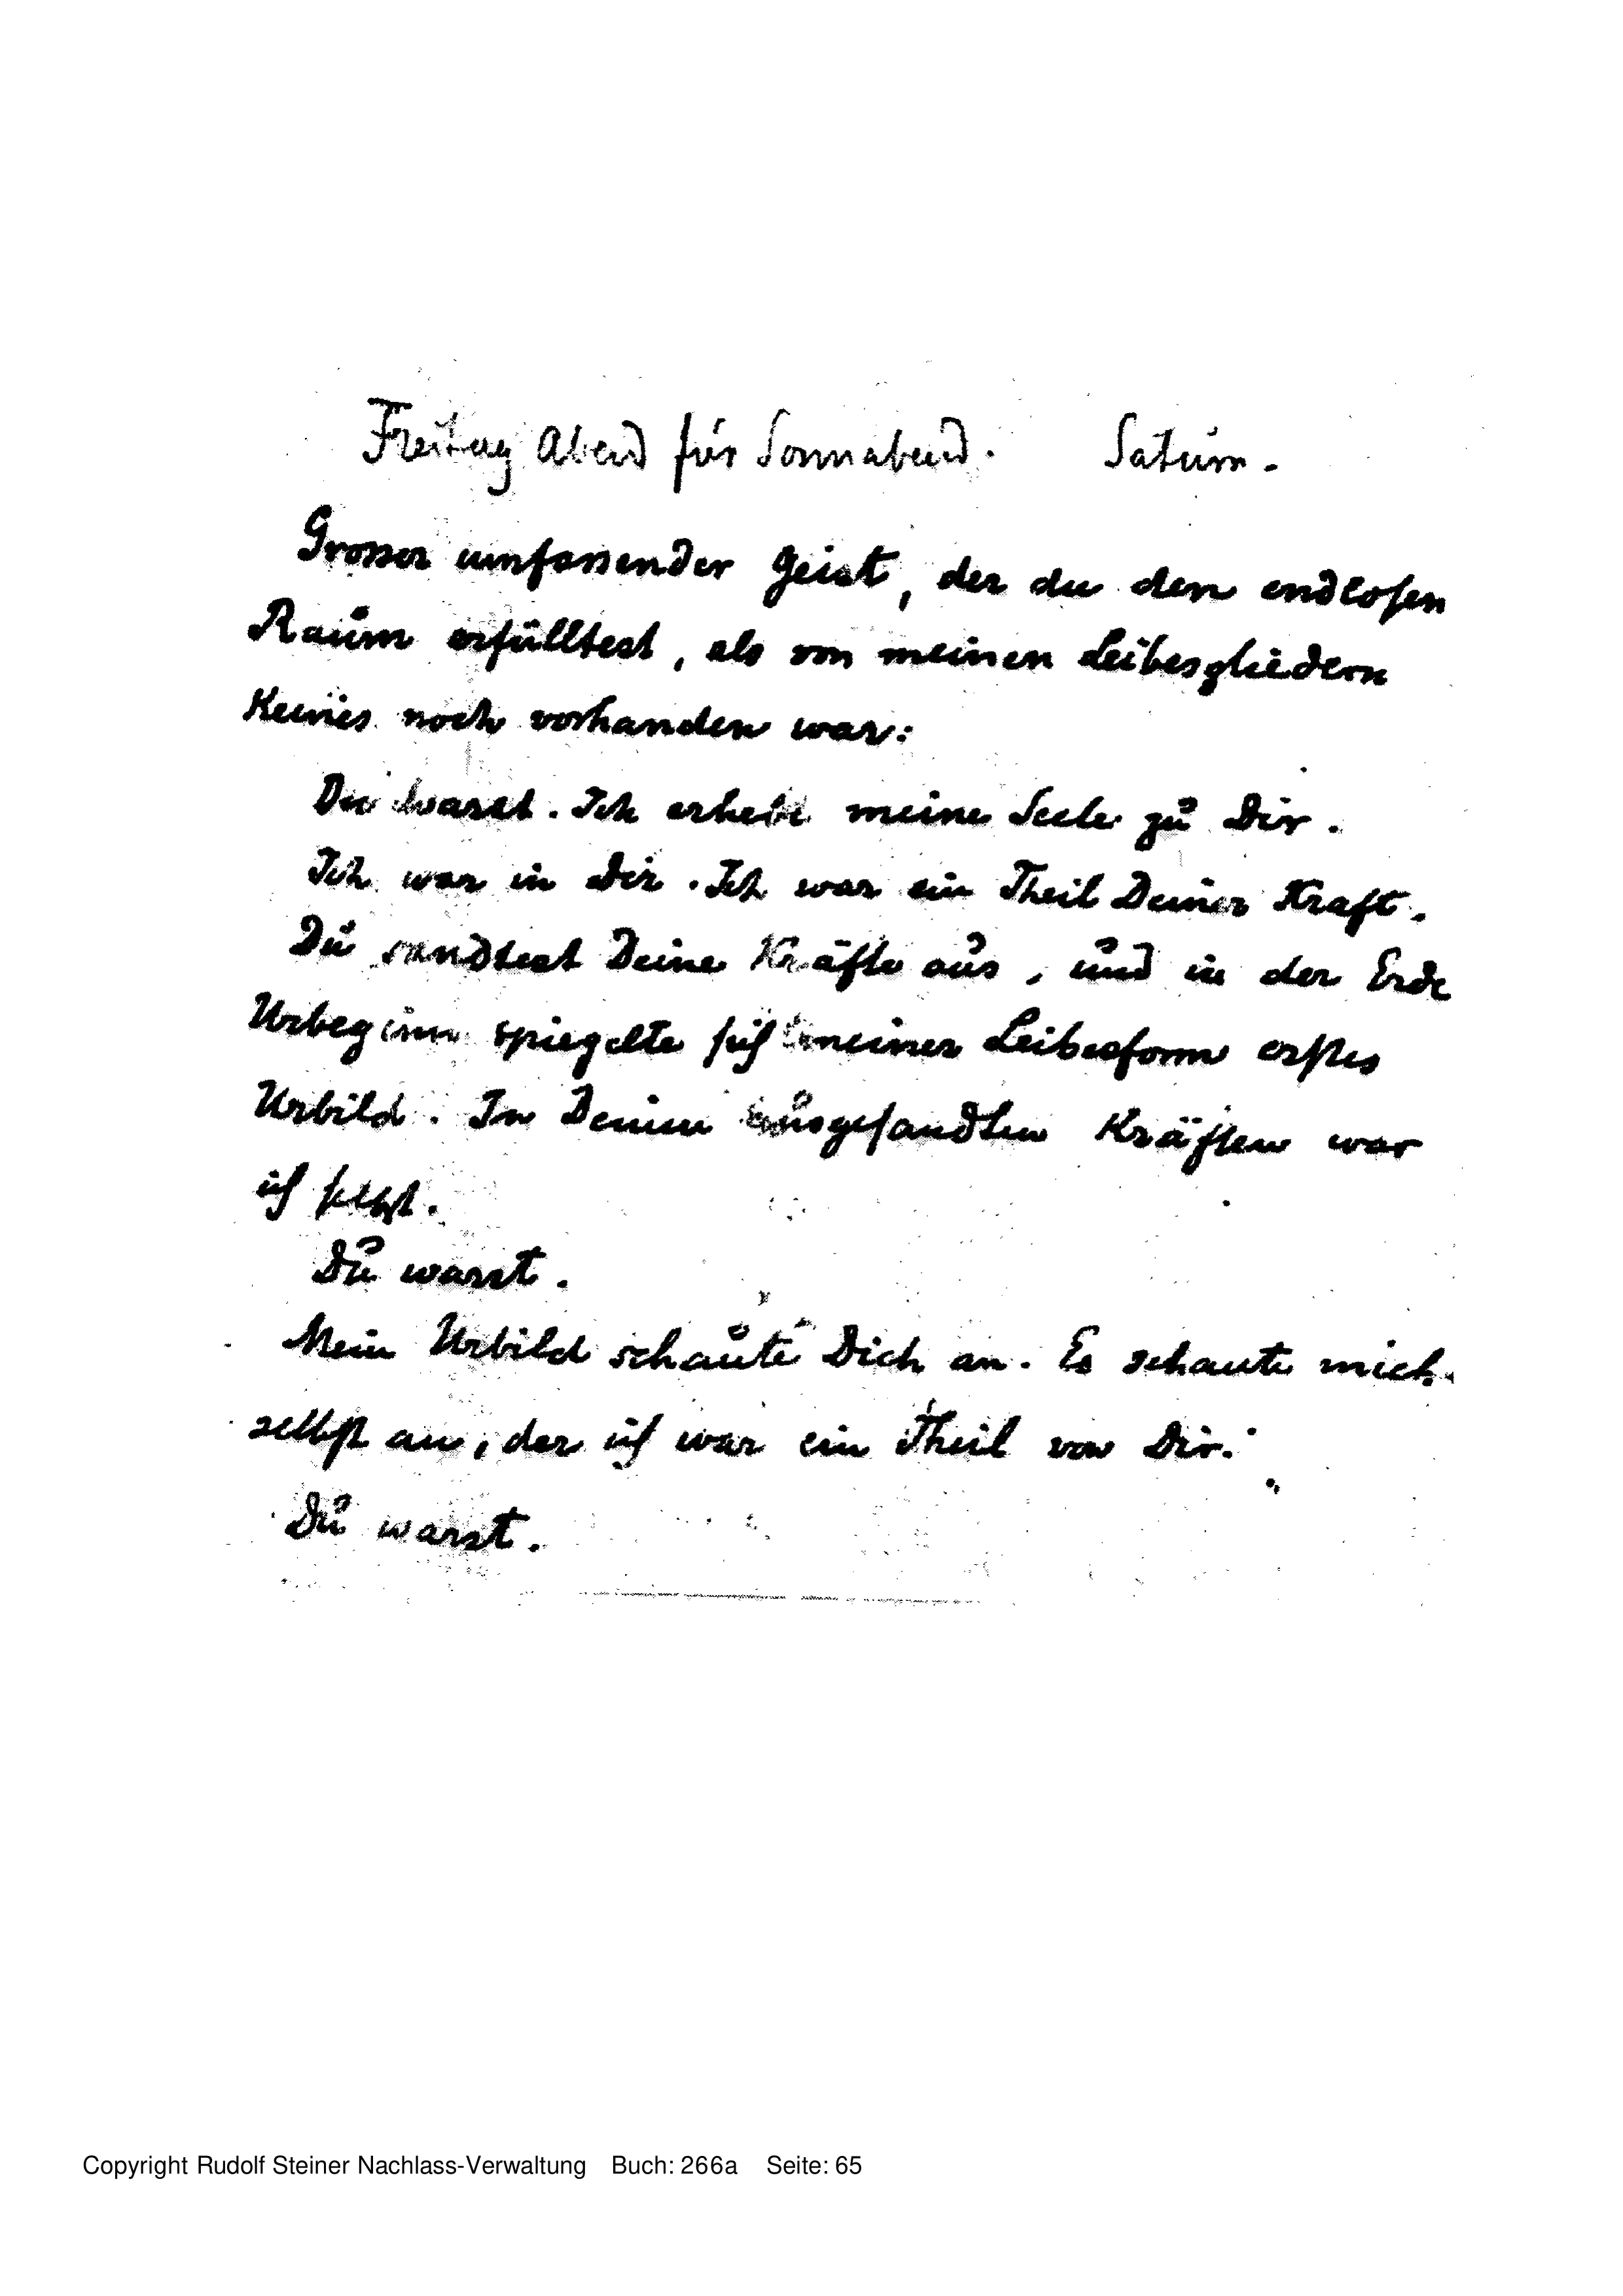 Freitag Abend für Sonnabend. Saturn.
Grosser umfassender Geist, der du den endlosen
Raum erfülltest, als von meinen Leibesgliedern
Keines noch vorhanden war:
Du warst. Ich erhebe meine Seele zu Dir.
Ich war in Dir. Ich war ein Theil Deiner Kraft.
Du sandtest Deine Kräfte aus, und in der Erde
Urbeginn spiegelte sich meiner Leibesform erstes
Urbild. In Deinen ausgesandten Kräften war
ich selbst.
Du warst.
Mein Urbild schaute Dich an. Es schaute mich
selbst an, der ich war ein Theil von Dir.
Du warst.
Copyright Rudolf Steiner Nachlass-Verwaltung Buch: 266a Seite: 65